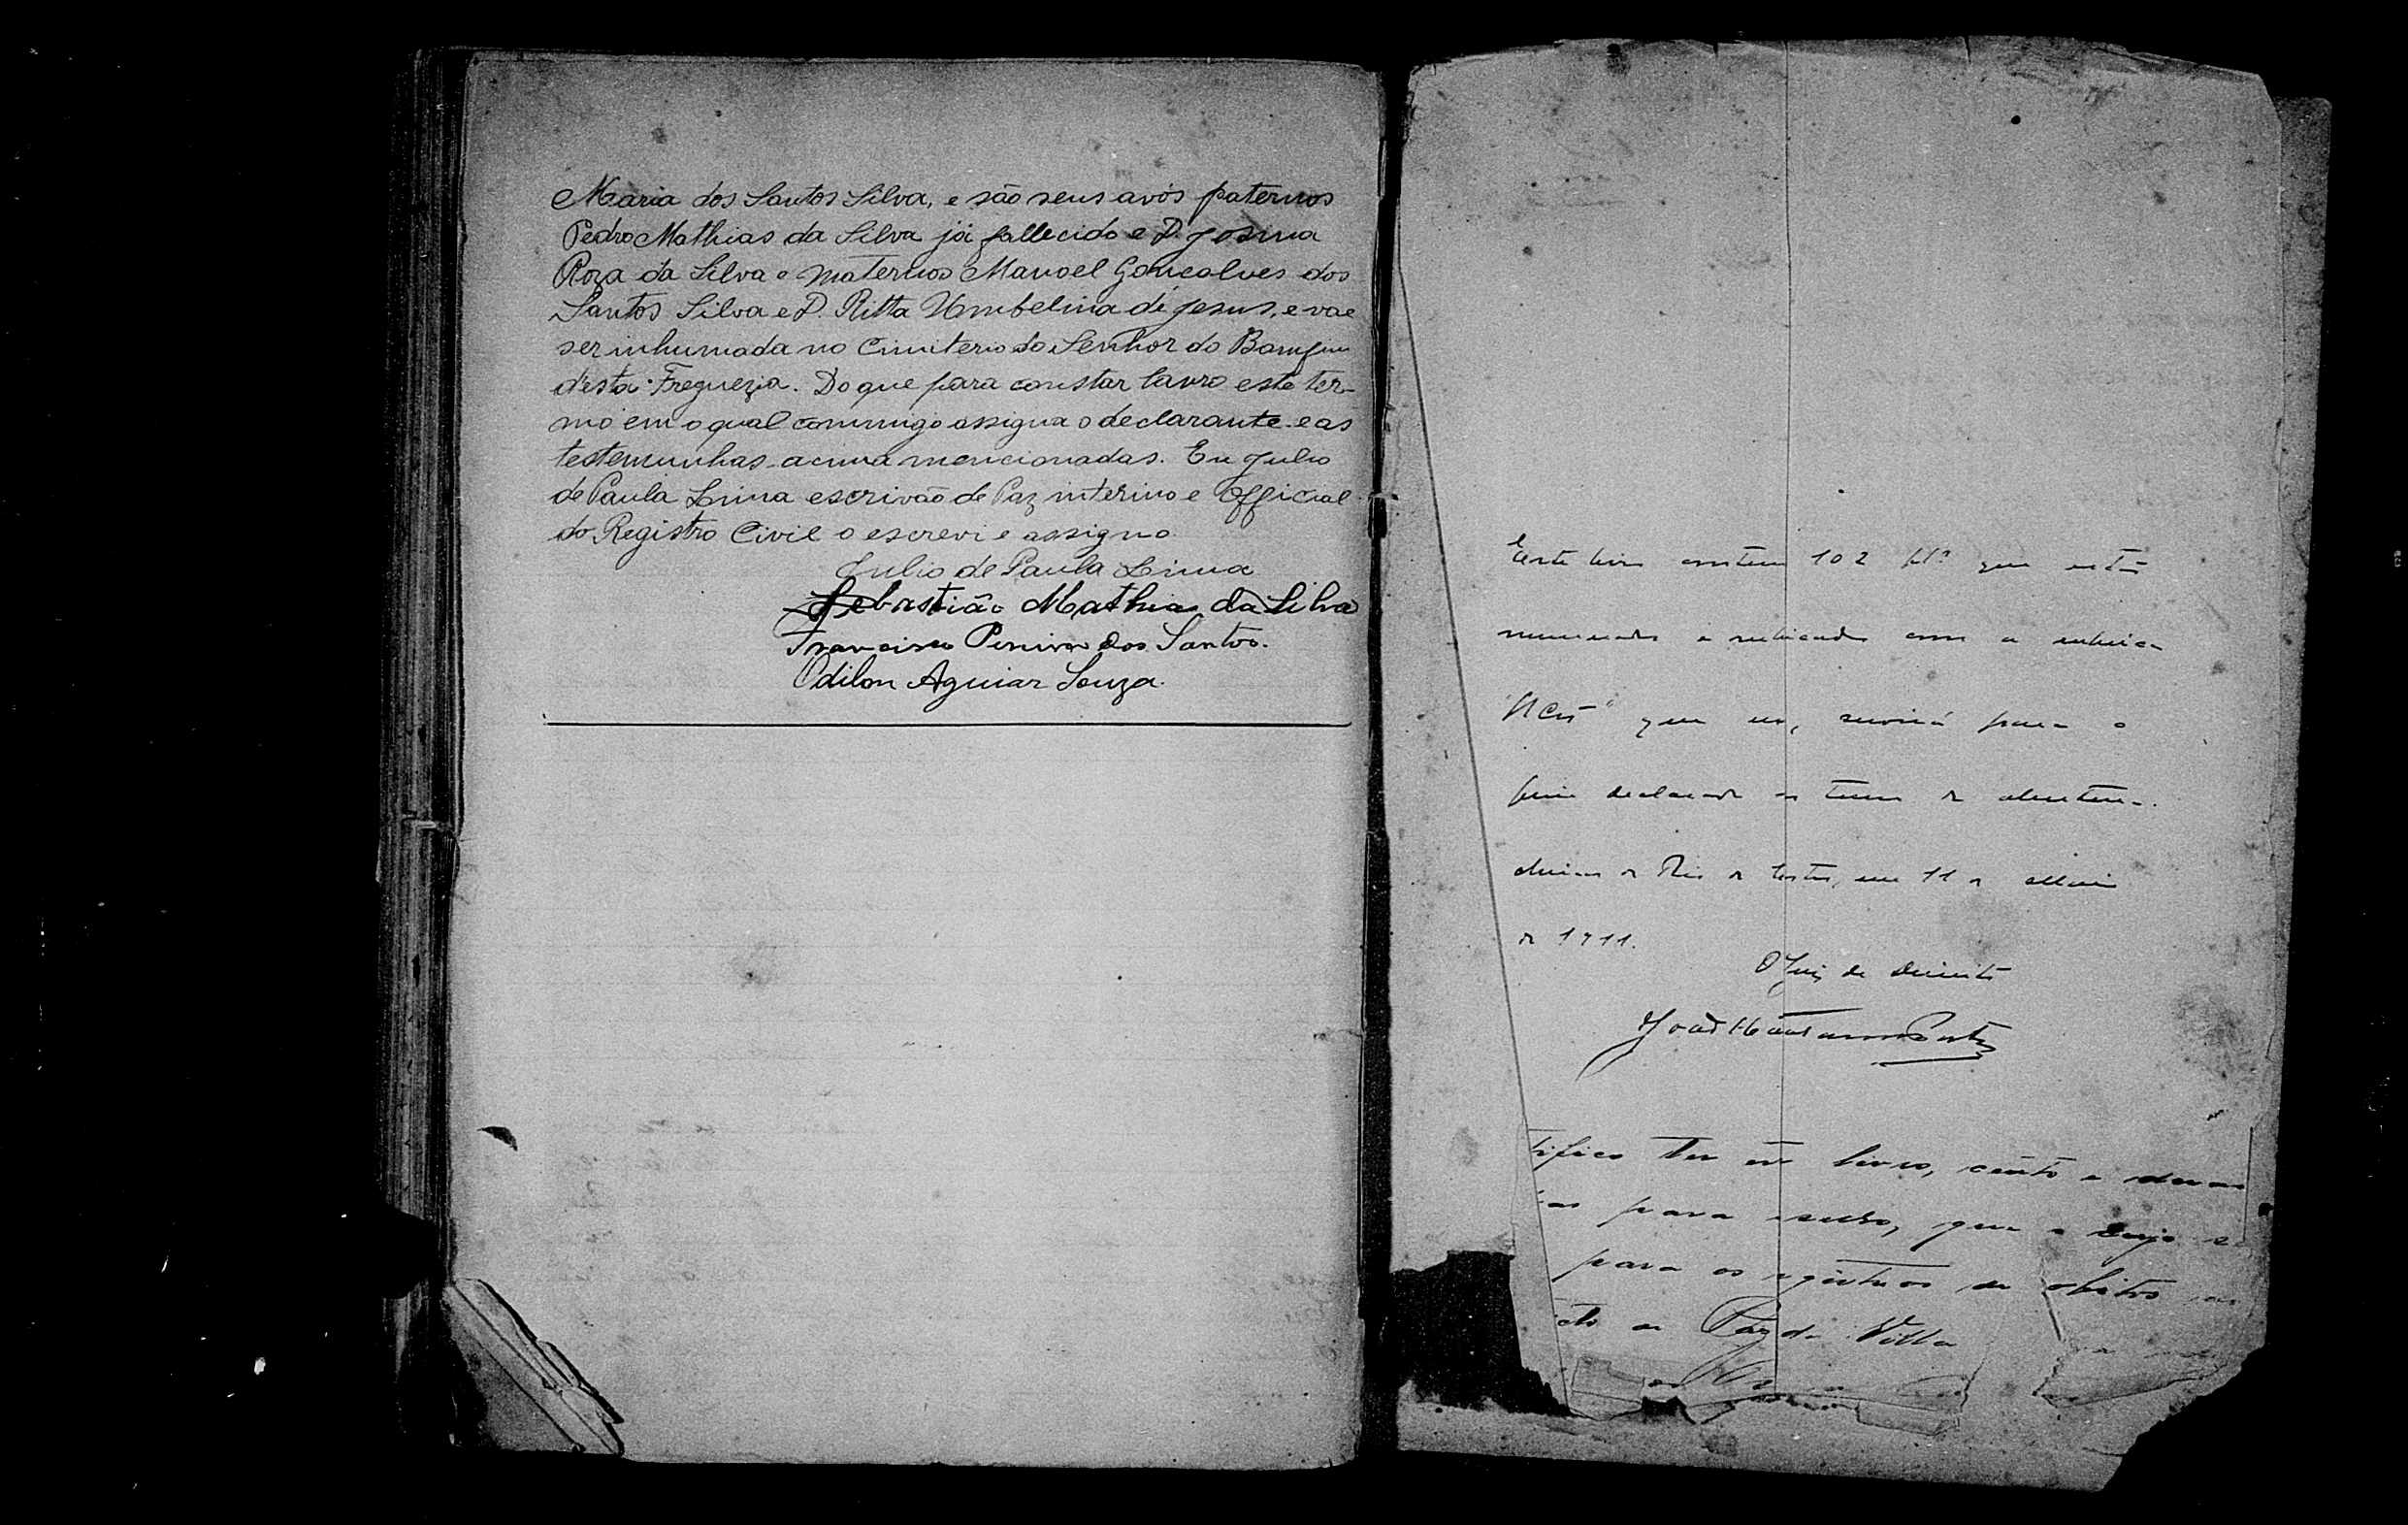 Maria dos Santos Silva, e são seus avós paternos
Pedro Mathias da Silva já fallecido e D. Josina
Roza da Silva e maternos Manoel Gonçalves dos
Santos Silva e D. Ritta Umbelina de Jesus, e vae
ser inhumada no Cimiterio do Senhor do Bomfim
desta Freguezia. Do que para constar lavro este ter-
mo em o qual commigo assigna o declarante e as
testemunhas acima mencionadas. Eu Julio
de Paula Lima escrivão de Paz interino e Official
do Registro Civil o escrevi e assigno
Julio de Paula Lima
Sebastião Mathias da Silva
Francisco Pereira dos Santos.
Odilon Aguiar Souza.
Este livro contem 102 fls que estão
numeradas e rubricadas com a rubrica
que uso, servirá para o
fim declarado no termo de abertura.
Rio de Contas, em 11 de
de 1911.
O Juiz de Direito
João
tifico ter este livro, cento e duas
para que
para os registros de obitos
de Paz da Villa